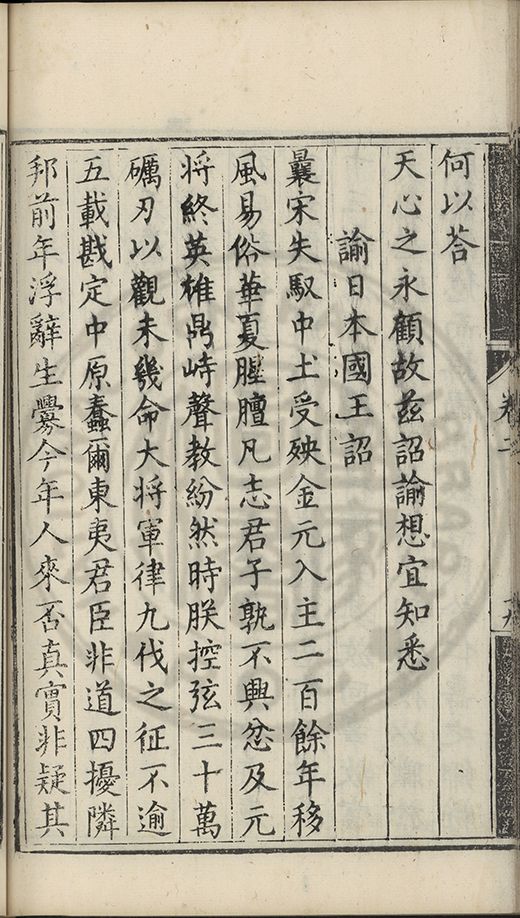 何以荅
天心之永顧故茲詔諭想宜知悉
諭日本國王詔
曩宋失馭中土受殃金元入主二百餘年移
風易俗華夏腥膻凡志君子孰不興忿及元
將終英雄鼎峙聲教紛然時朕控弦三十萬
礪刃以觀未幾命大將軍律九伐之征不逾
五載戡定中原蠢爾東夷君臣非道四擾隣
邦前年浮辭生釁今年人來否真實非疑其
卷二